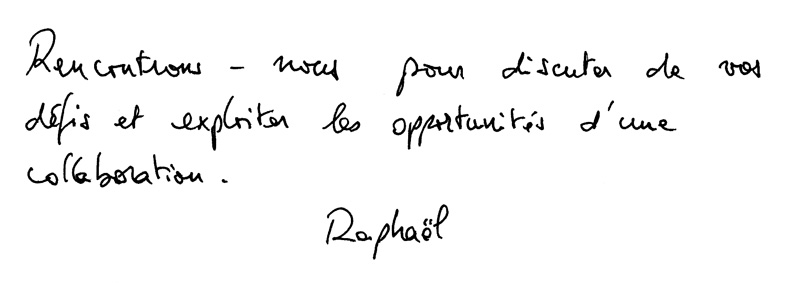 Rencontrons-nous pour discuter de vos
défis et exploiter les opportunités d'une
collaboration.
Raphaël